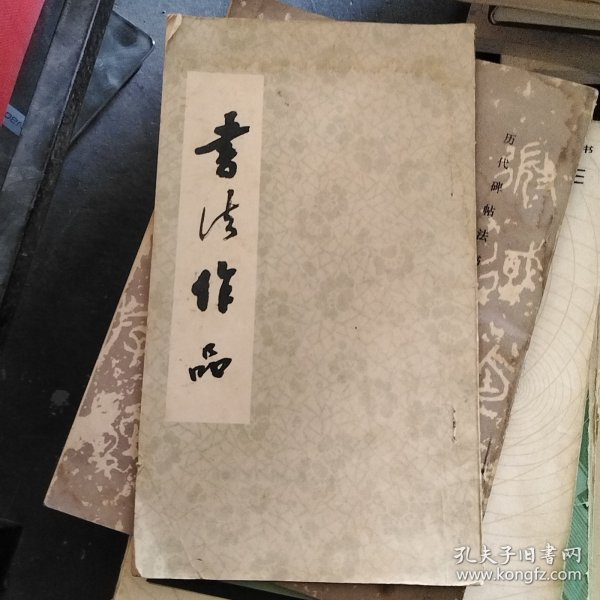 书法作品
历代碑帖法书
书
三
孔夫子旧书网
www.kongfz.com